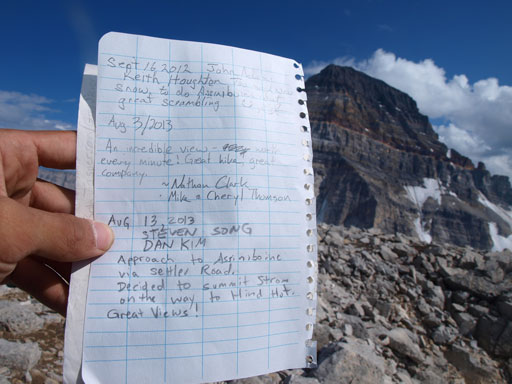 Sept 16, 2012 John
Keith Houghton
snow, to do Assiniboine
great scrambling
Aug. 3/2013
An incredible view - worth
every minute! Great hike, great
company.
~ Nathan Clark
· Mike & Cheryl Thomson
Aug 13, 2013
STEVEN SONG
DAN KIM
Approach to Assiniboine
via Settler Road.
Decided to summit Strom
on the way to Hind Hut.
Great Views!